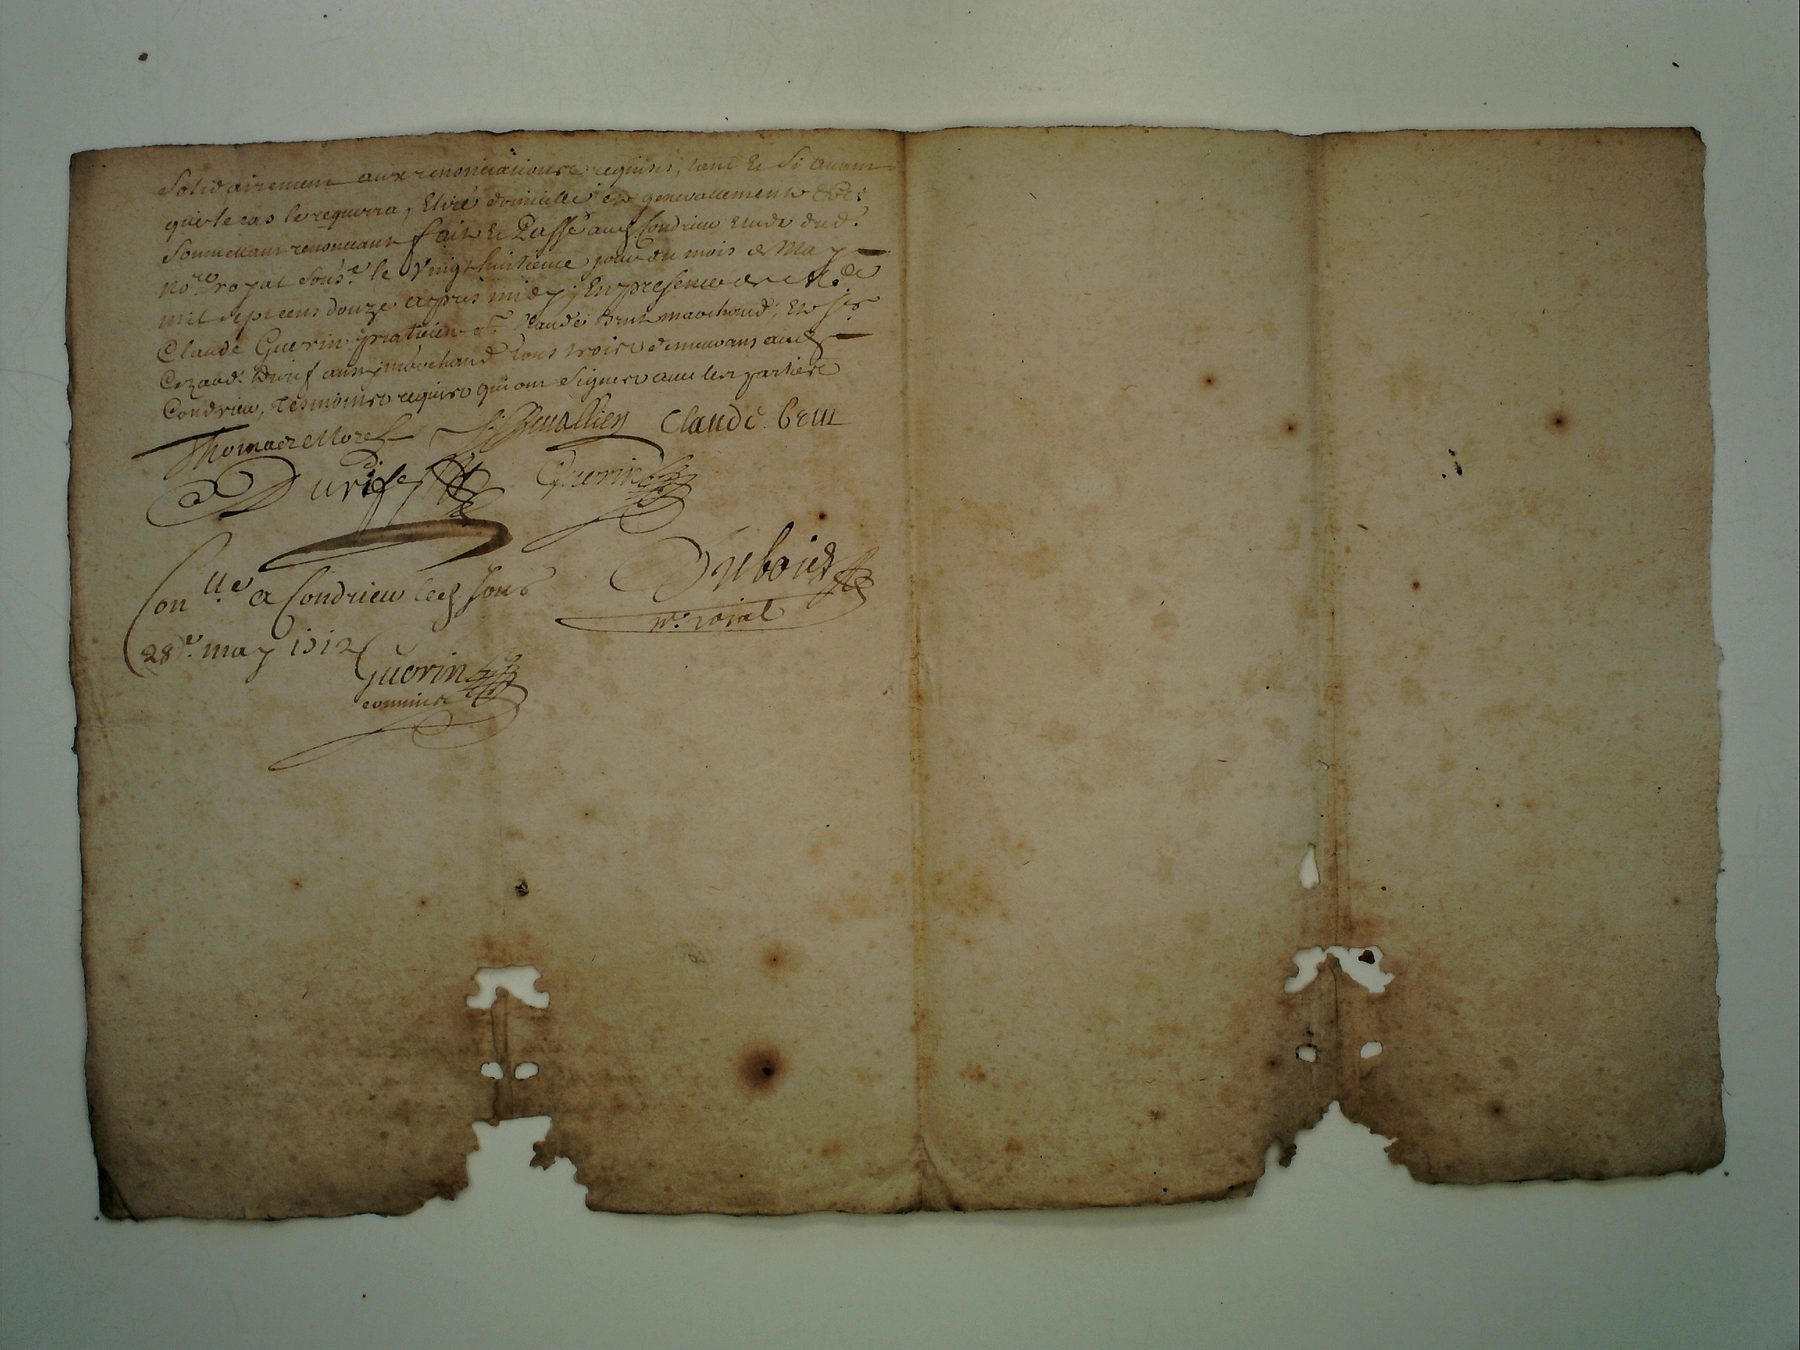 Solidairement aux renonciations requises, tant Et Si avant
que le cas le requerra, Elire domicille Et generallement &c
Soumettant renonceant fait Et Passé aud Condrieu Etude dud.
no.re royal Sous.é le vingt huitieme jour du mois de May
mil sept cens douze appres midy, En presence de M.e
Claude Guerin praticien Claude Brut marchand, Et
aussy marchand tous trois demeurans aud
Condrieu, Tesmoins requis qui ont Signes avec les parties
Thomas Morel Chevallier Claude brut
Durif Guerin
Con.lle a Condrieu led jour
Dubois
n.re roial
28.e may 1712
Guerin
commis